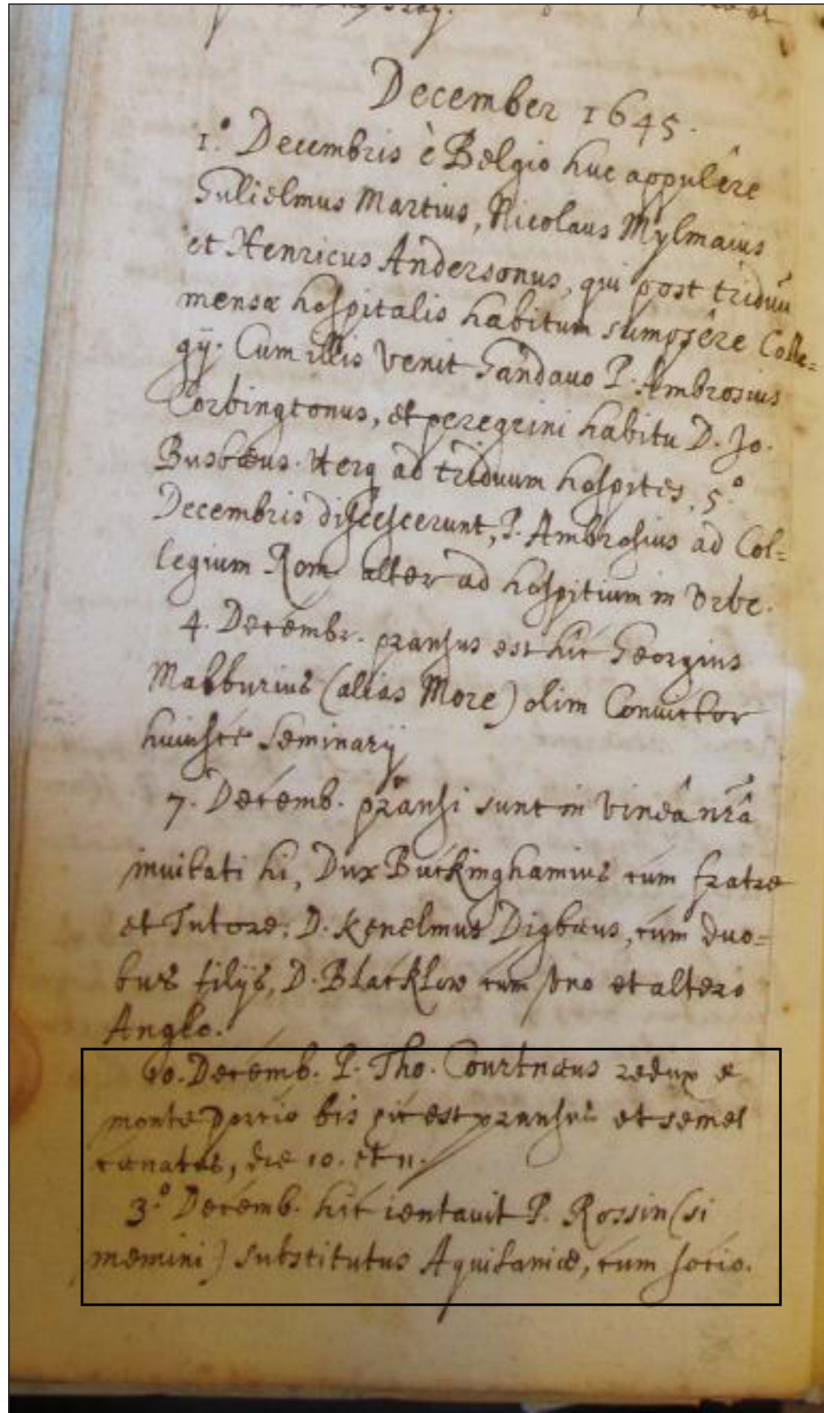 December 1645.
1.º Decembris è Belgio huc appulêre
Gulielmus Martius, Nicolaus Mylmaius
et Henricus Andersonus, qui post triduũ
mensæ hospitalis habitum sumpsêre Colle=
gÿ. Cum illis venit Gandavo P. Ambrosius
Corbingtonus, et peregrini habitu D. Jo.
Busbæus. Herq ad triduum hospites, 5.º
Decembris discescerunt, P. Ambrosius ad Col=
legium Rom. alter ad hospitium in Vrbe.
4. Decembr. pransus est hîc Georgius
Mabburius (alias More) olim Convictor
huiusce Seminarÿ
7. Decemb. pransi sunt in Vineâ nr̃â
invitati hi, Dux Buckinghamius cum fratre
et Tutore; D. Kenelmus Digbæus, cum duo=
bus filÿs, D. Blacklow cum vno et altero
Anglo.
10. Decemb. P. Tho. Courtnæus redux e
monte Portio bis hic est pransus et semel
cænatus, die 10. et 11.
3.º Decemb. hîc ientavit P. Rossin (si
memini) substitutus Aquitaniæ, cum socio.